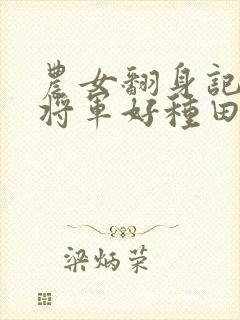 農女翻身記
將軍好種田
梁炳荣